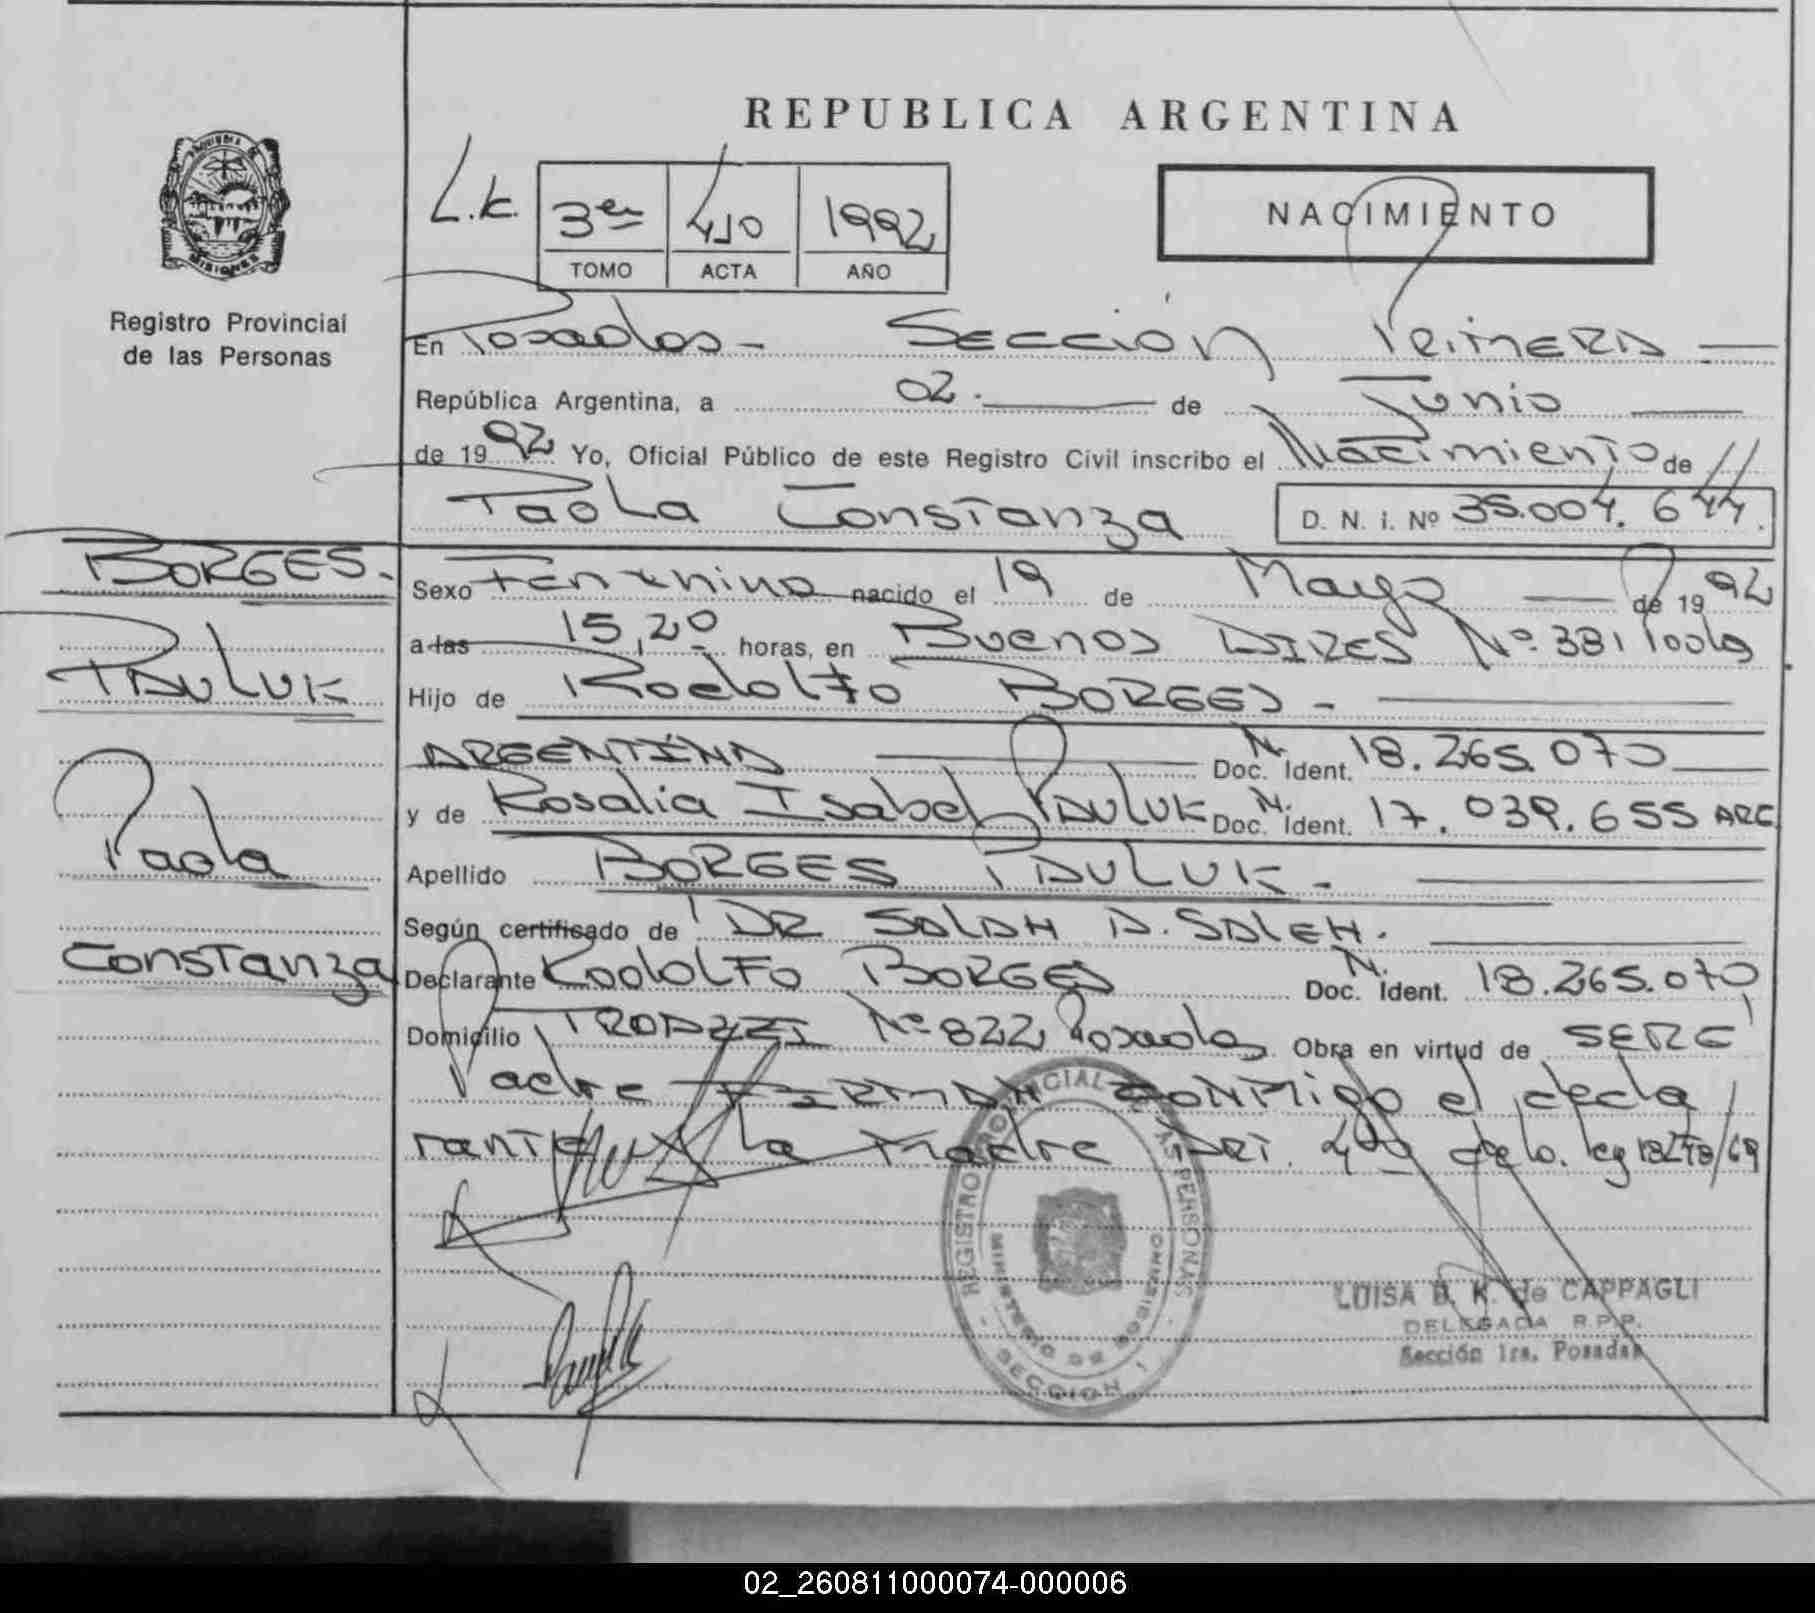 REPUBLICA ARGENTINA
MISIONES
Registro Provincial
de las Personas
L.K.
3er 410 1992
TOMO ACTA AÑO
NACIMIENTO
En Posadas - SECCIÓN PRIMERA
República Argentina, a 02. de Junio
de 1992 Yo, Oficial Público de este Registro Civil inscribo el Nacimiento de
Paola Constanza D. N. I. Nº 35.004.644.
BORGES.
PAULUK
Paola
Constanza
Sexo Femenino nacido el 19 de Mayo de 1992
a las 15,20 horas, en Buenos AIRES Nº 381
Hijo de Rodolfo BORGES -
ARGENTINA Doc. Ident. N. 18.265.070
y de Rosalia Isabel PAULUK Doc. Ident. N. 17.039.655 ARG
Apellido BORGES PAULUK -
Según certificado de DR SALAH A. SALEH.
Declarante Rodolfo BORGES Doc. Ident. N. 18.265.070
Domicilio Nº 822 Posadas Obra en virtud de SER el
Padre FIRMAN CONMigo el decla
rante y la Madre ART. de la ley 18248/69
REGISTRO PROVINCIAL DE LAS PERSONAS
MINISTERIO DE GOBIERNO
- SECCION 1 -
LUISA B. K. de CAPPAGLI
DELEGADA R.P.P.
Sección 1ra. Posadas
02_260811000074-000006